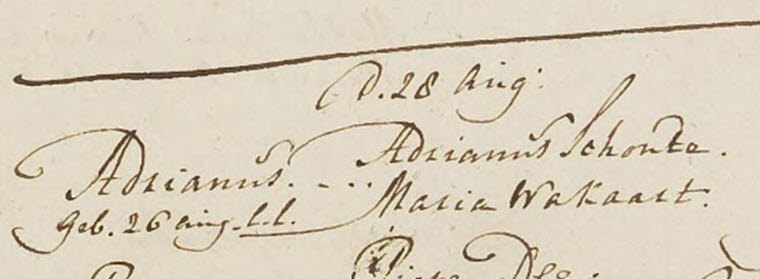 D. 28 Aug:
Adrianus. - . . . Adrianus Schoute.
Maria Wakaart.
geb. 26 aug. l.l.